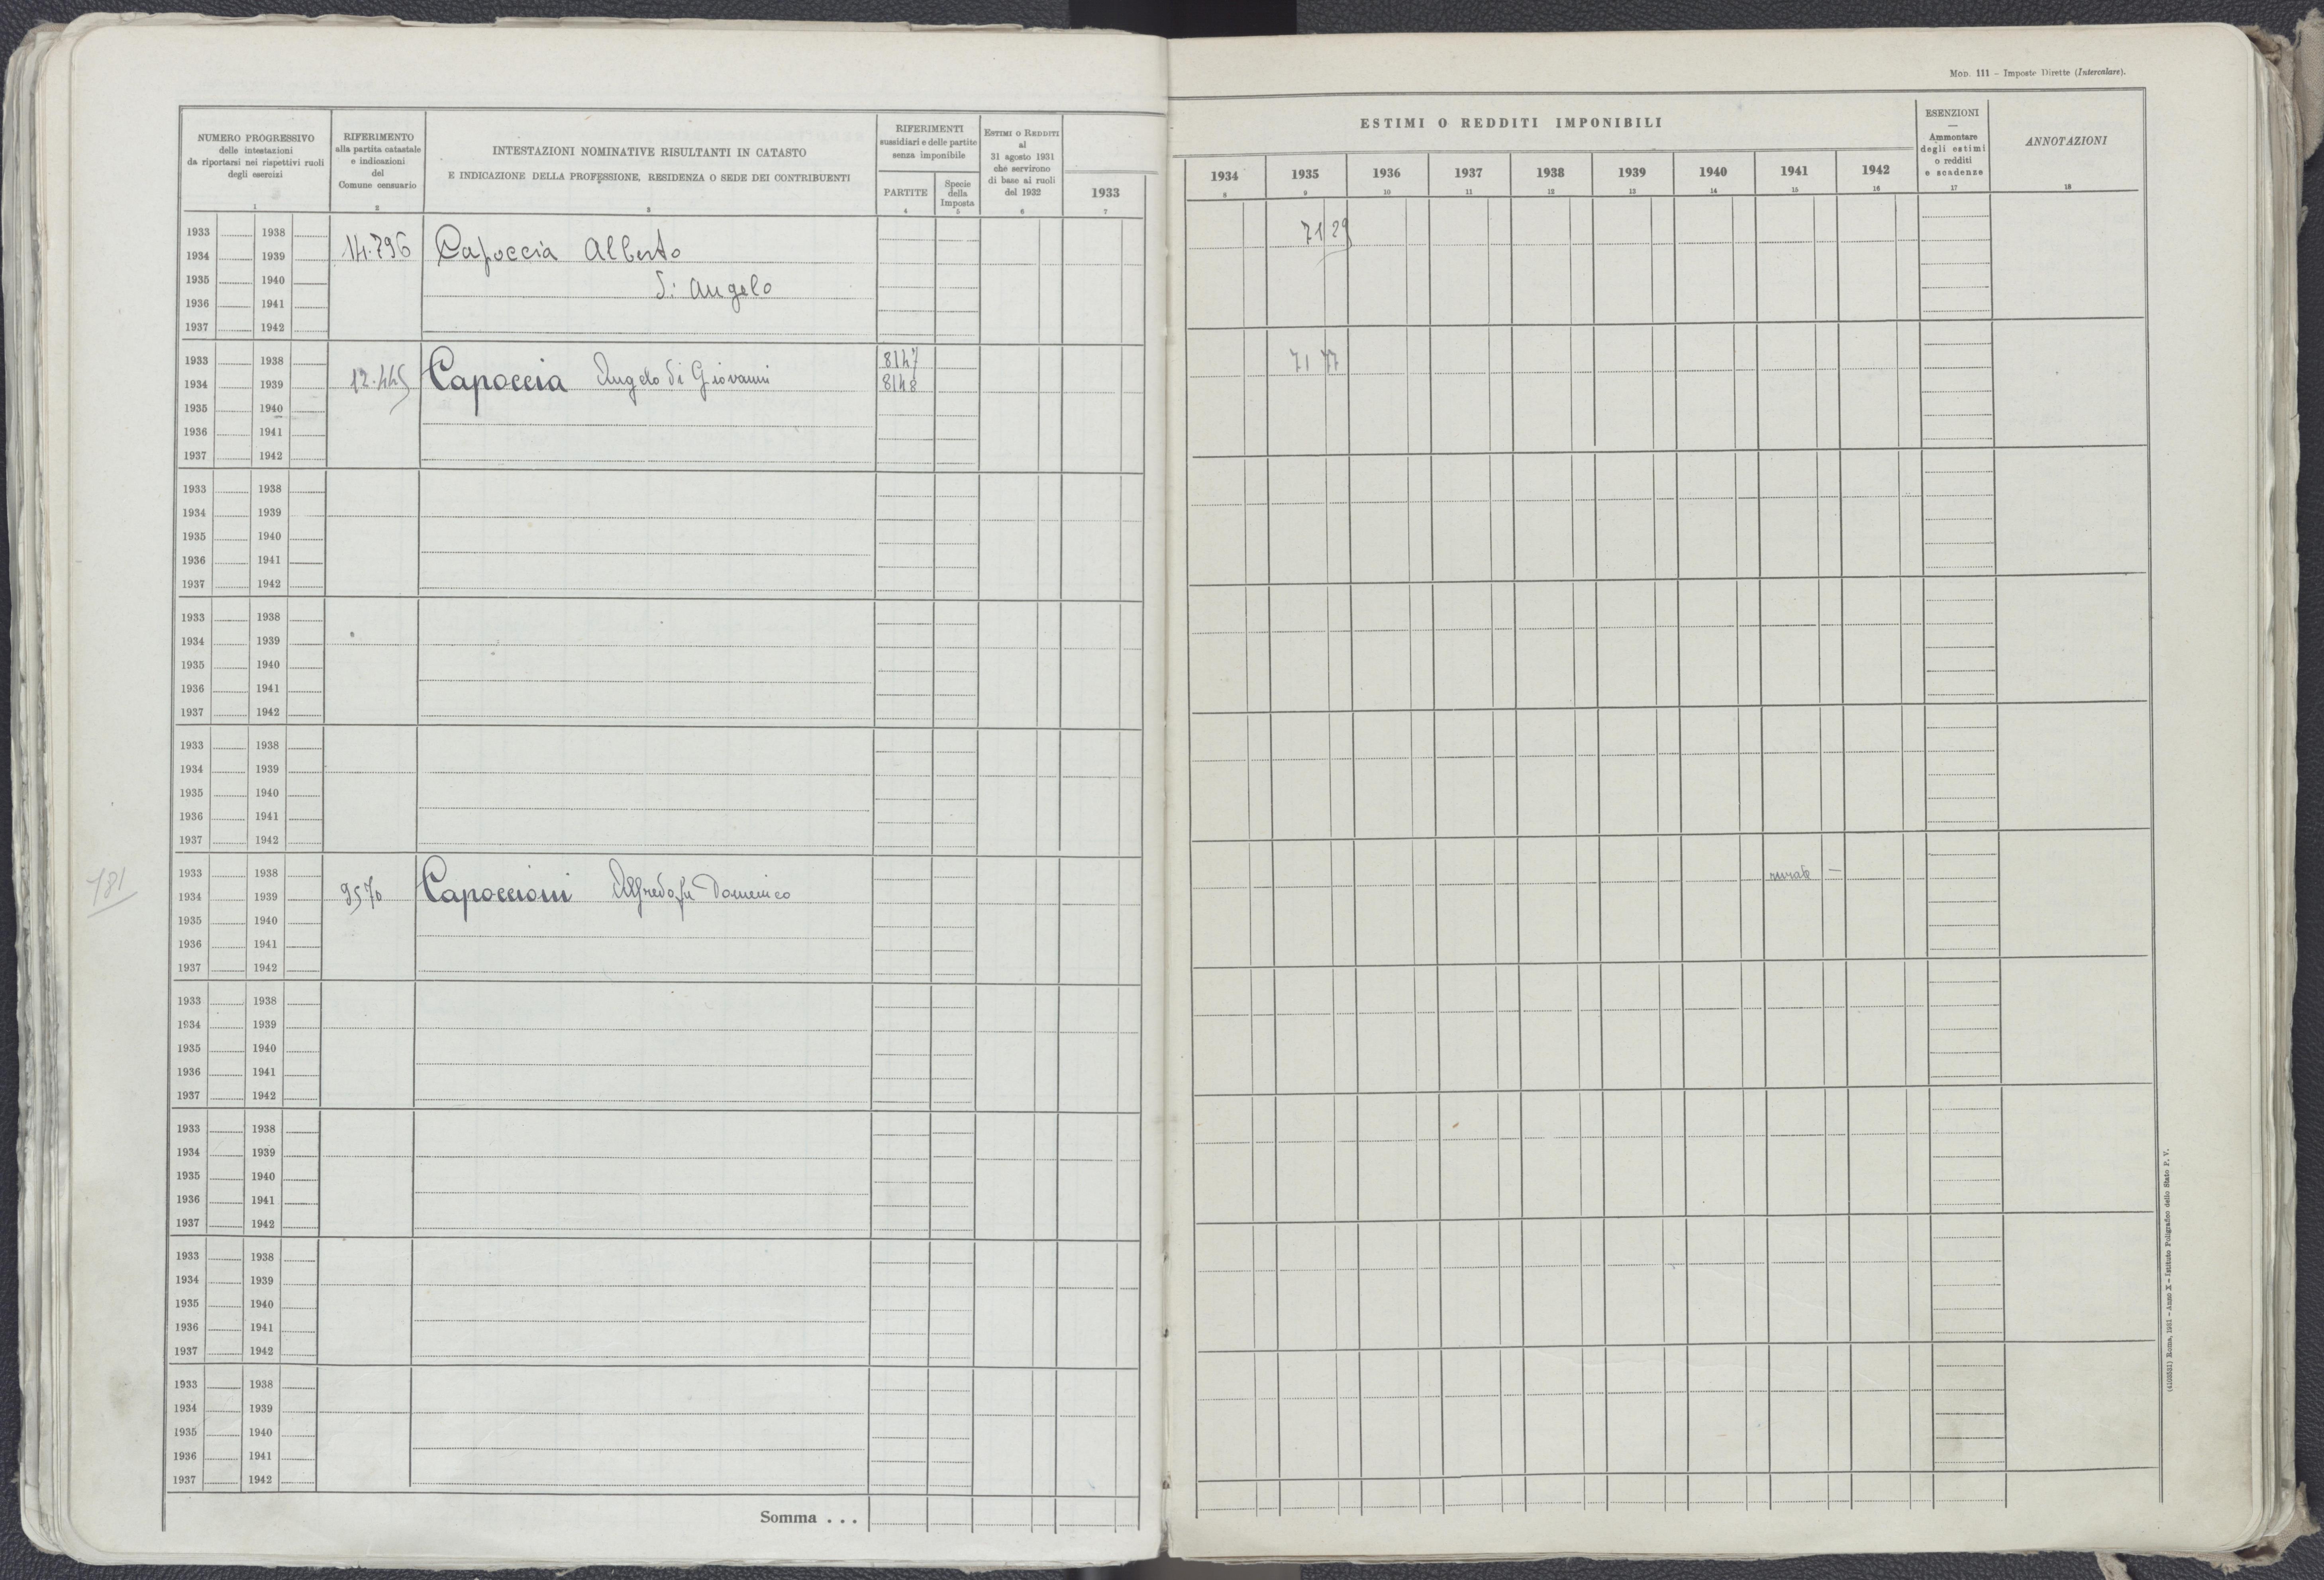 MOD. 111 – Imposte Dirette (Intercalare).
NUMERO PROGRESSIVO
delle intestazioni
da riportarsi nei rispettivi ruoli
degli esercizi
1
RIFERIMENTO
alla partita catastale
e indicazioni
del
Comune censuario
2
INTESTAZIONI NOMINATIVE RISULTANTI IN CATASTO
E INDICAZIONE DELLA PROFESSIONE, RESIDENZA O SEDE DEI CONTRIBUENTI
3
RIFERIMENTI
sussidiari e delle partite
senza imponibile
PARTITE
4
Specie
della
Imposta
5
ESTIMI O REDDITI
al
31 agosto 1931
che servirono
di base ai ruoli
del 1932
6
1933
7
ESTIMI O REDDITI IMPONIBILI
1934 1935 1936 1937 1938 1939 1940 1941 1942
8 9 10 11 12 13 14 15 16
ESENZIONI
—
Ammontare
degli estimi
o redditi
e scadenze
17
ANNOTAZIONI
18
1933 1938
1934 1939 14.796 Capoccia Alberto 71 29
1935 1940 di Angelo
1936 1941
1937 1942
1933 1938 8147 71 77
1934 1939 12.445 Capoccia Angelo di Giovanni 8148
1935 1940
1936 1941
1937 1942
1933 1938
1934 1939
1935 1940
1936 1941
1937 1942
1933 1938
1934 1939
1935 1940
1936 1941
1937 1942
1933 1938
1934 1939
1935 1940
1936 1941
1937 1942
1933 1938 rurale —
1934 1939 9570 Capoccioni Alfredo fu Domenico
1935 1940
1936 1941
1937 1942
181
1933 1938
1934 1939
1935 1940
1936 1941
1937 1942
1933 1938
1934 1939
1935 1940
1936 1941
1937 1942
1933 1938
1934 1939
1935 1940
1936 1941
1937 1942
1933 1938
1934 1939
1935 1940
1936 1941
1937 1942
Somma . . .
(4103531) Roma, 1931 – Anno X – Istituto Poligrafico dello Stato P. V.